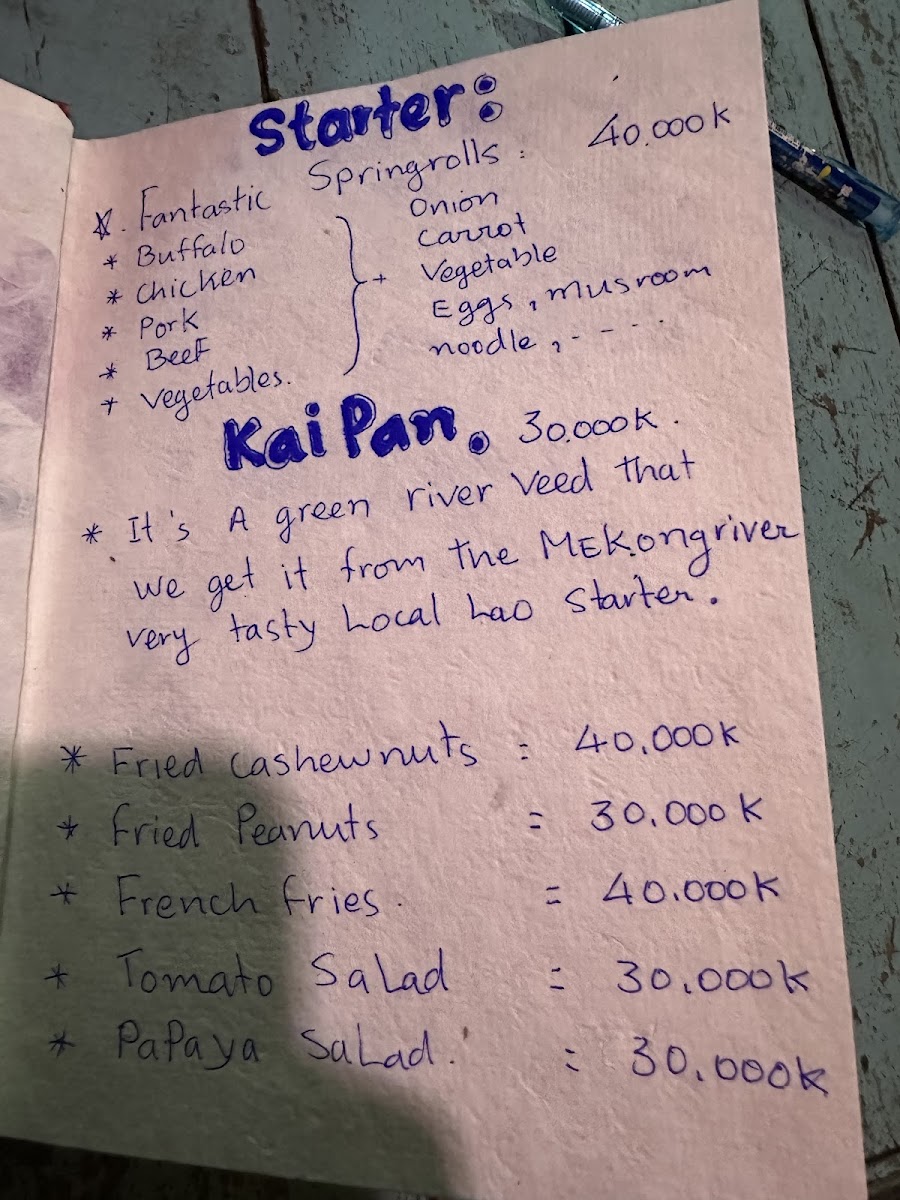 Starter:
☆. Fantastic Springrolls : 40.000k
* Buffalo
* Chicken
* Pork
* Beef
+ Vegetables.
} +
Onion
Carrot
Vegetable
Eggs, musroom
noodle, - - - -
Kai Pan. 30.000k.
* It's A green river Veed that
we get it from the MEKongriver
very tasty Local Lao starter.
* Fried Cashewnuts : 40.000k
* Fried Peanuts = 30.000k
* French fries. = 40.000k
* Tomato Salad : 30.000k
* Papaya Salad. : 30.000k